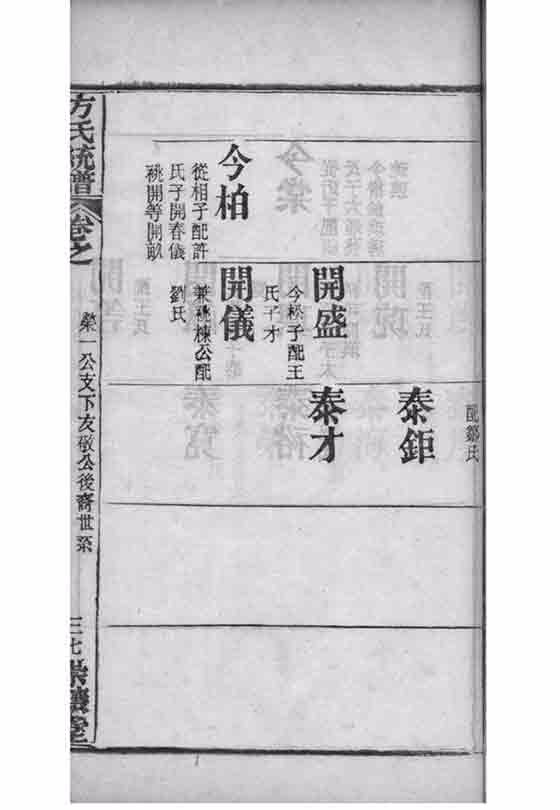 配鄒氏
泰鉅
開盛
今松子配王
氏子才
泰才
今柏
從相子配許
氏子開春儀
祧開等開畝
開儀
兼祧棟公配
劉氏
方氏統譜
卷之
榮一公支下友敬公後裔世系
三七
崇讓堂